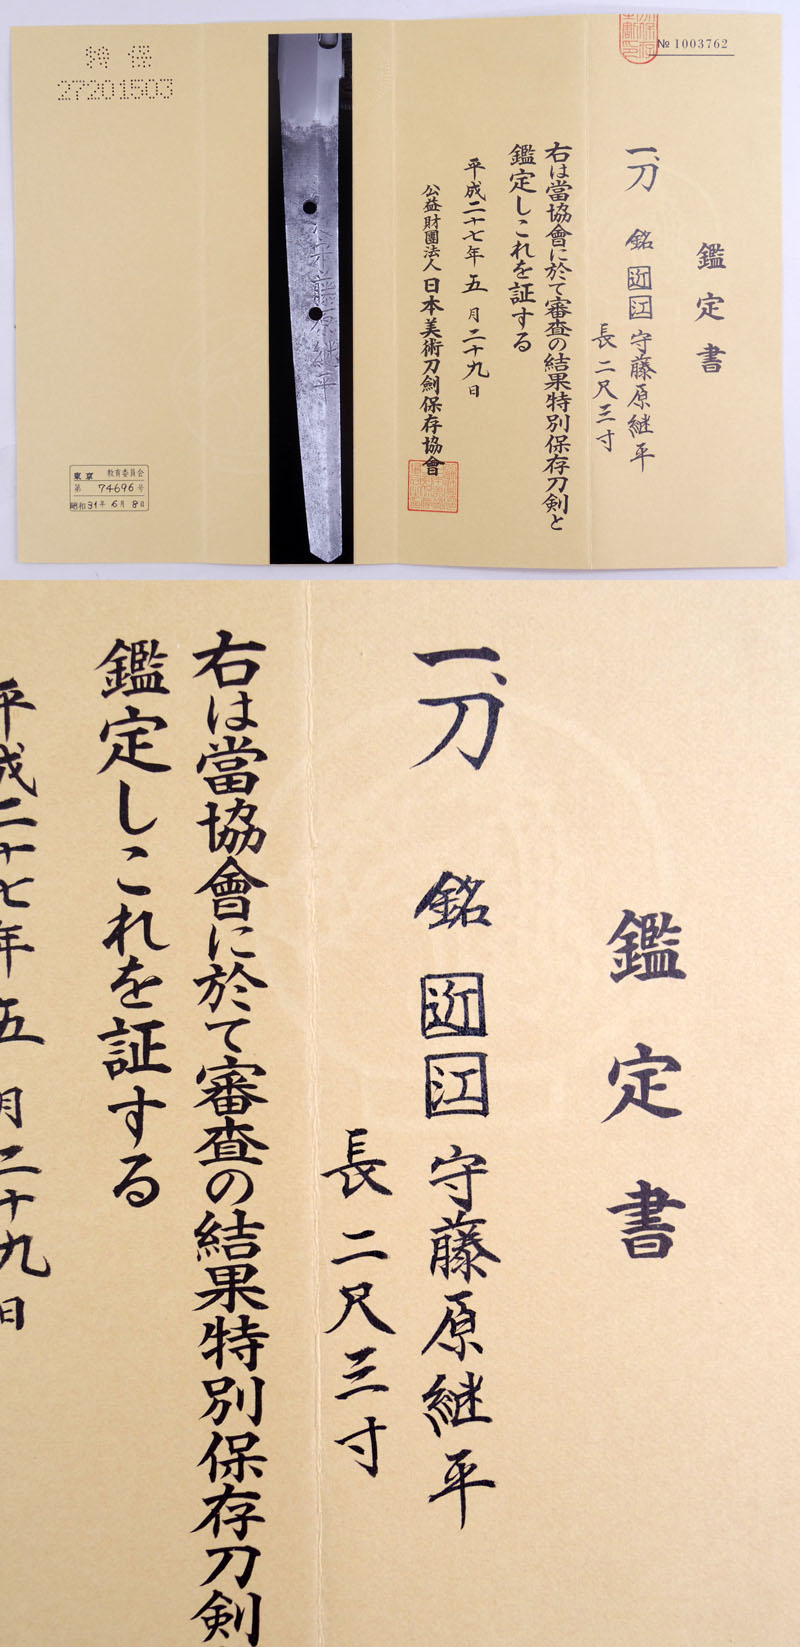 鑑定書
一、刀 銘 近江守藤原継平
長二尺三寸
右は當協會に於て審査の結果特別保存刀剣と
鑑定しこれを証する
平成二十七年五月二十九日
公益財團法人日本美術刀劍保存協會
№ 1003762
藤原継平
特保
27201503
東京 教育委員会
第 74696 号
昭和31年6月8日
鑑定書
一、刀 銘 近江守藤原継平
長二尺三寸
右は當協會に於て審査の結果特別保存刀剣
鑑定しこれを証する
平成二十七年五月二十九日